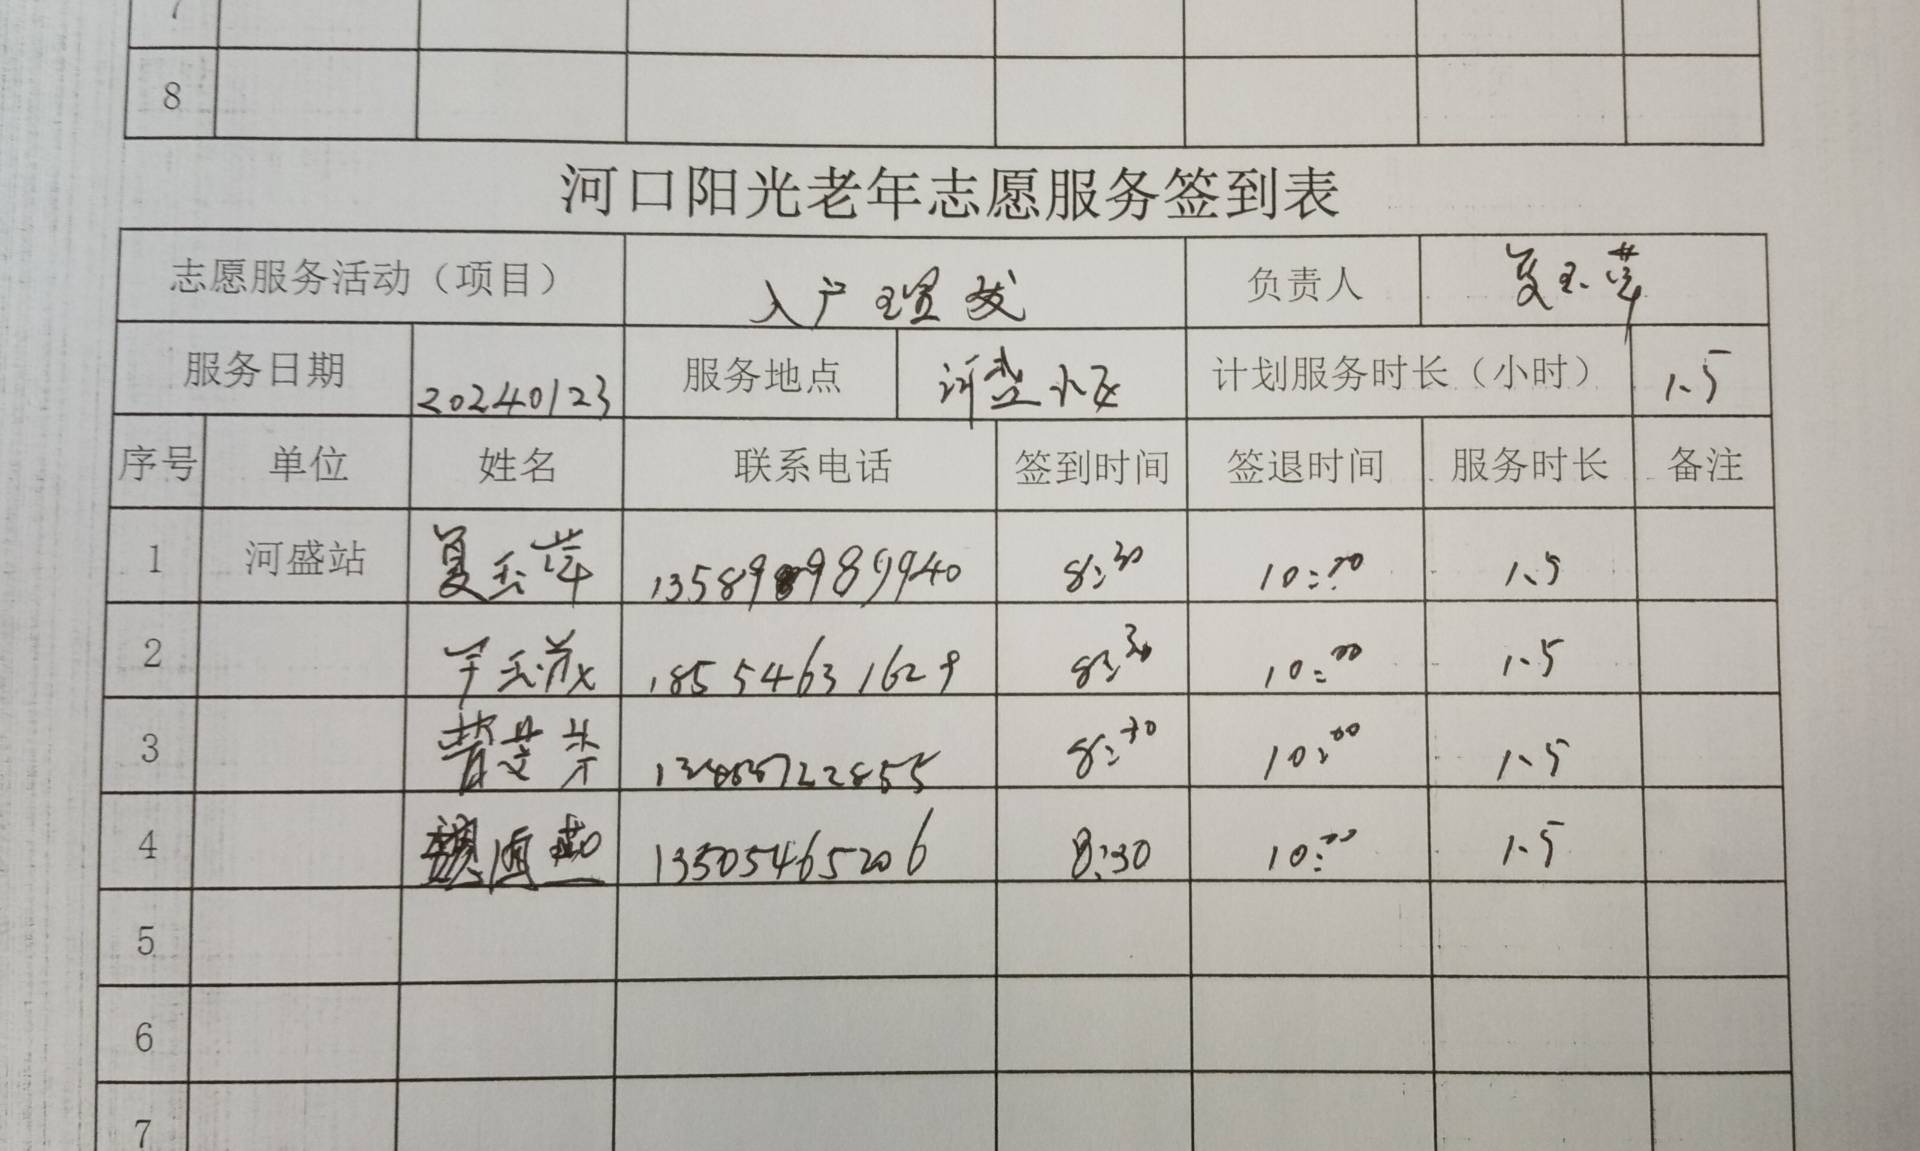 7
8
河口阳光老年志愿服务签到表
志愿服务活动（项目） 入户理发 负责人 夏玉萍
服务日期 20240123 服务地点 河盛小区 计划服务时长（小时） 1.5
序号 单位 姓名 联系电话 签到时间 签退时间 服务时长 备注
1 河盛站 夏玉萍 13589989940 8:30 10:00 1.5
2 18554631629 8:30 10:00 1.5
3 8:30 10:00 1.5
4 13505465206 8:30 10:00 1.5
5
6
7